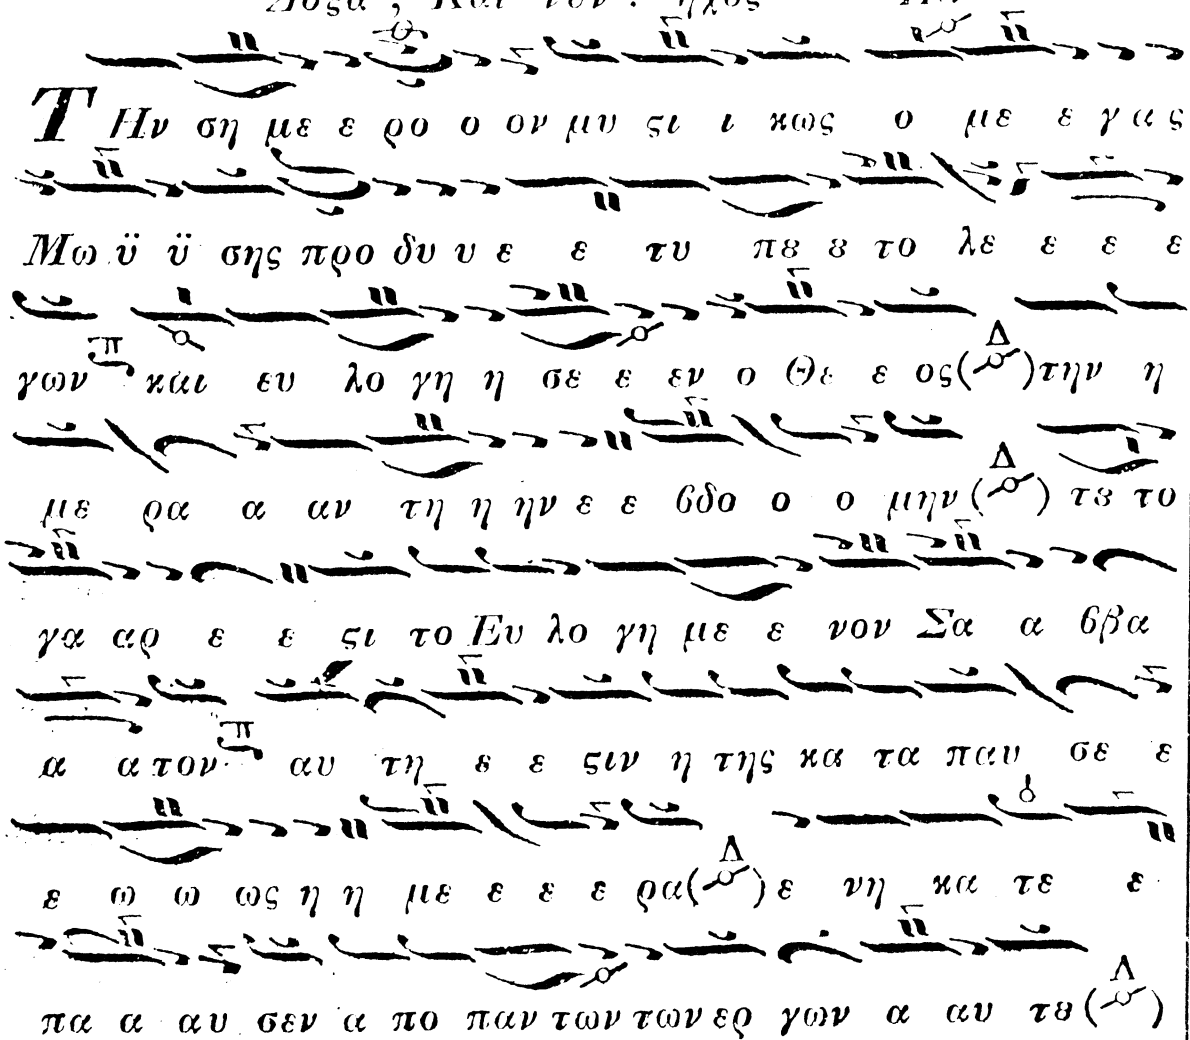 Δόξα, Και νυν. ήχος
Την ση με ε ρο ο ον μυ ςι ι κως ο με ε γας
Μω ϋ ϋ σης προ δυ υ ε ε τυ πȣ ȣ το λε ε ε ε
γων και ευ λο γη η σε ε εν ο Θε ε ος (Δ) την η
με ρα α αν τη η ην ε ε βδο ο ο μην (Δ) τȣ το
γα αρ ε ε ςι το Ευ λο γη με ε νον Σα α ββα
α α τον αυ τη ε ε ςιν η της κα τα παυ σε ε
ε ω ω ως η η με ε ε ε ρα (Δ) ε νη κα τε ε
πα α αυ σεν α πο παν των των ερ γων α αυ τȣ (Δ)